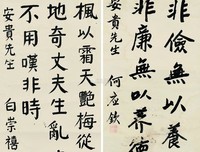 非儉無以養
非廉無以養德
安貴先生 何应欽
楓以霜天艷梅從
地奇丈夫生亂
不用嘆非時
安貴先生 白崇禧